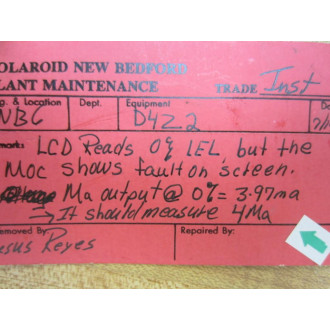 OLAROID NEW BEDFORD
LANT MAINTENANCE TRADE Inst
g. & Location Dept. Equipment Da
NBC D4Z2
marks LCD Reads 0% LEL, but the
MOC shows fault on screen.
Ma output @ 0% = 3.97ma
→ It should measure 4Ma
emoved By Repaired By:
esus Reyes